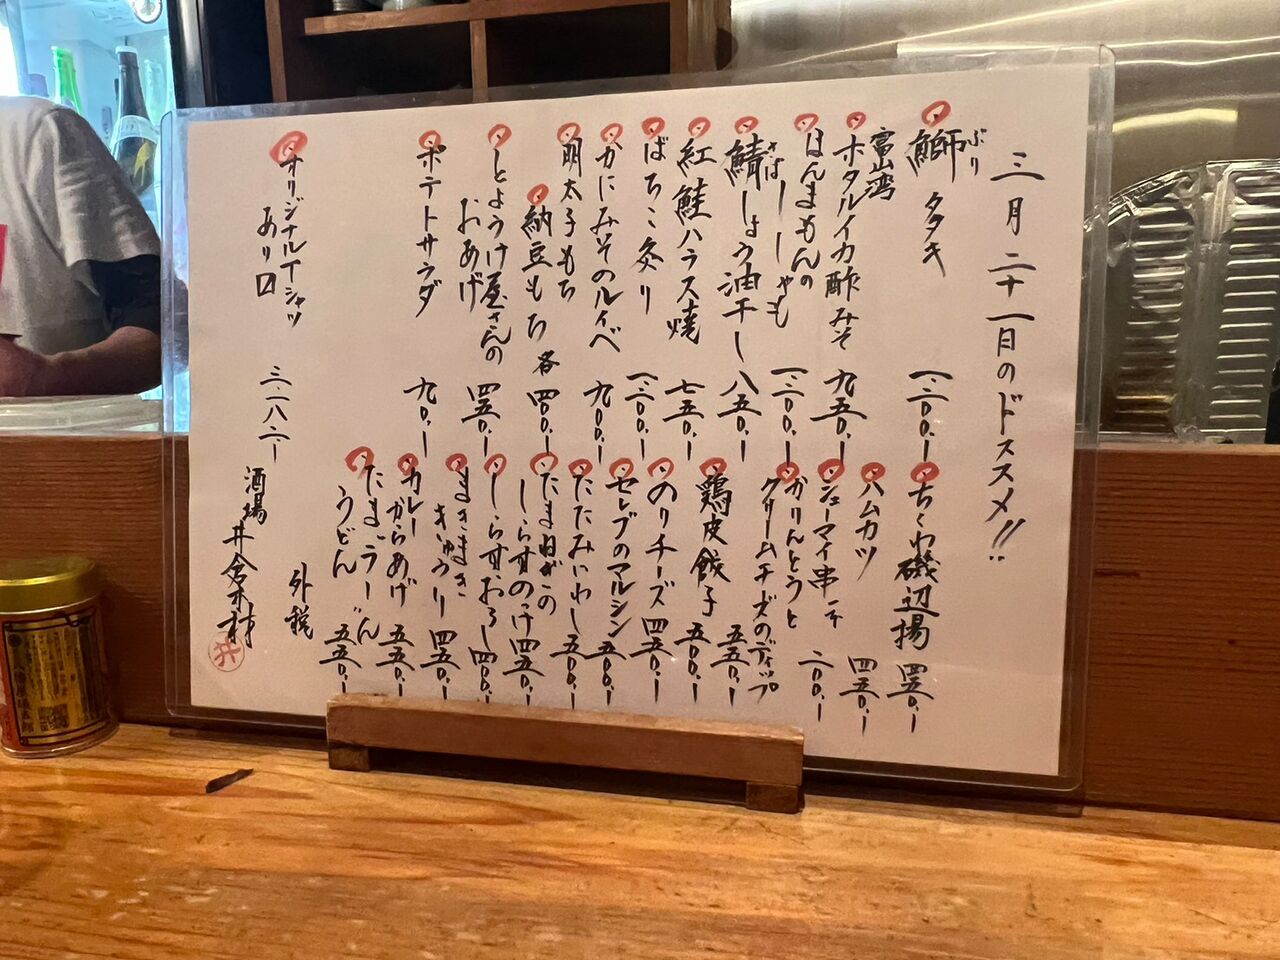 三月二十一日のドススメ!!
鰤 タタキ 一.二〇〇.ー
ぶり
富山湾
ホタルイカ酢みそ 九五〇.ー
ほんまもんの
ししゃも 一.二〇〇.ー
鯖しょう油干し 八五〇.ー
さば
紅鮭ハラス焼 七五〇.ー
ばちこ炙り 一.二〇〇.ー
かにみそのルイベ 九〇〇.ー
明太子もち
納豆もち 各 四〇〇.ー
とようけ屋さんの
おあげ 四五〇.ー
ポテトサラダ 九〇.ー
ちくわ磯辺揚 四五〇.ー
ハムカツ 四五〇.ー
シューマイ串 二〇〇.ー
かりんとうと
クリームチーズのディップ 五五〇.ー
鶏皮餃子 五〇〇.ー
のりチーズ 四五〇.ー
セレブのマルシン 五〇.ー
たたみいわし 五〇〇.ー
たまねぎの
しらすのっけ 四五〇.ー
しらすおろし 四〇〇.ー
まきまき
きゅうり 四五〇.ー
カレー
からあげ 五五〇.ー
たまごラーどん
うどん 五五〇.ー
オリジナルTシャツ
あり〼 三.一八二.ー
外税
酒場 井倉木材